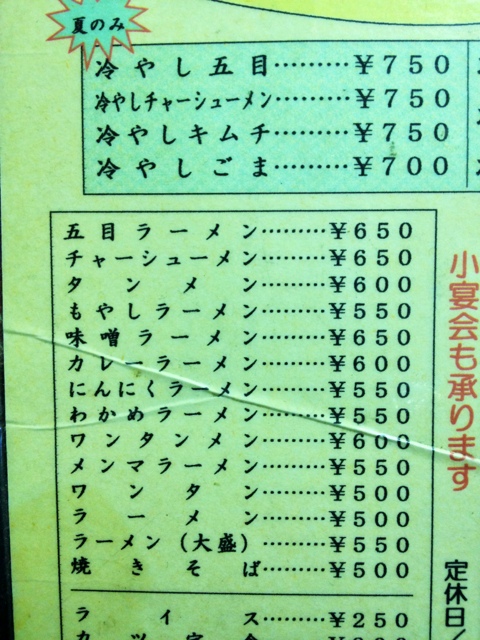 夏のみ
冷やし五目………¥750
冷やしチャーシューメン………¥750
冷やしキムチ………¥750
冷やしごま………¥700
五目ラーメン………¥650
チャーシューメン………¥650
タンメン………¥600
もやしラーメン………¥550
味噌ラーメン………¥650
カレーラーメン………¥600
にんにくラーメン………¥550
わかめラーメン………¥550
ワンタンメン………¥600
メンマラーメン………¥550
ワンタン………¥500
ラーメン………¥500
ラーメン(大盛)………¥550
焼きそば………¥500
ライス………¥250
小宴会も承ります
定休日